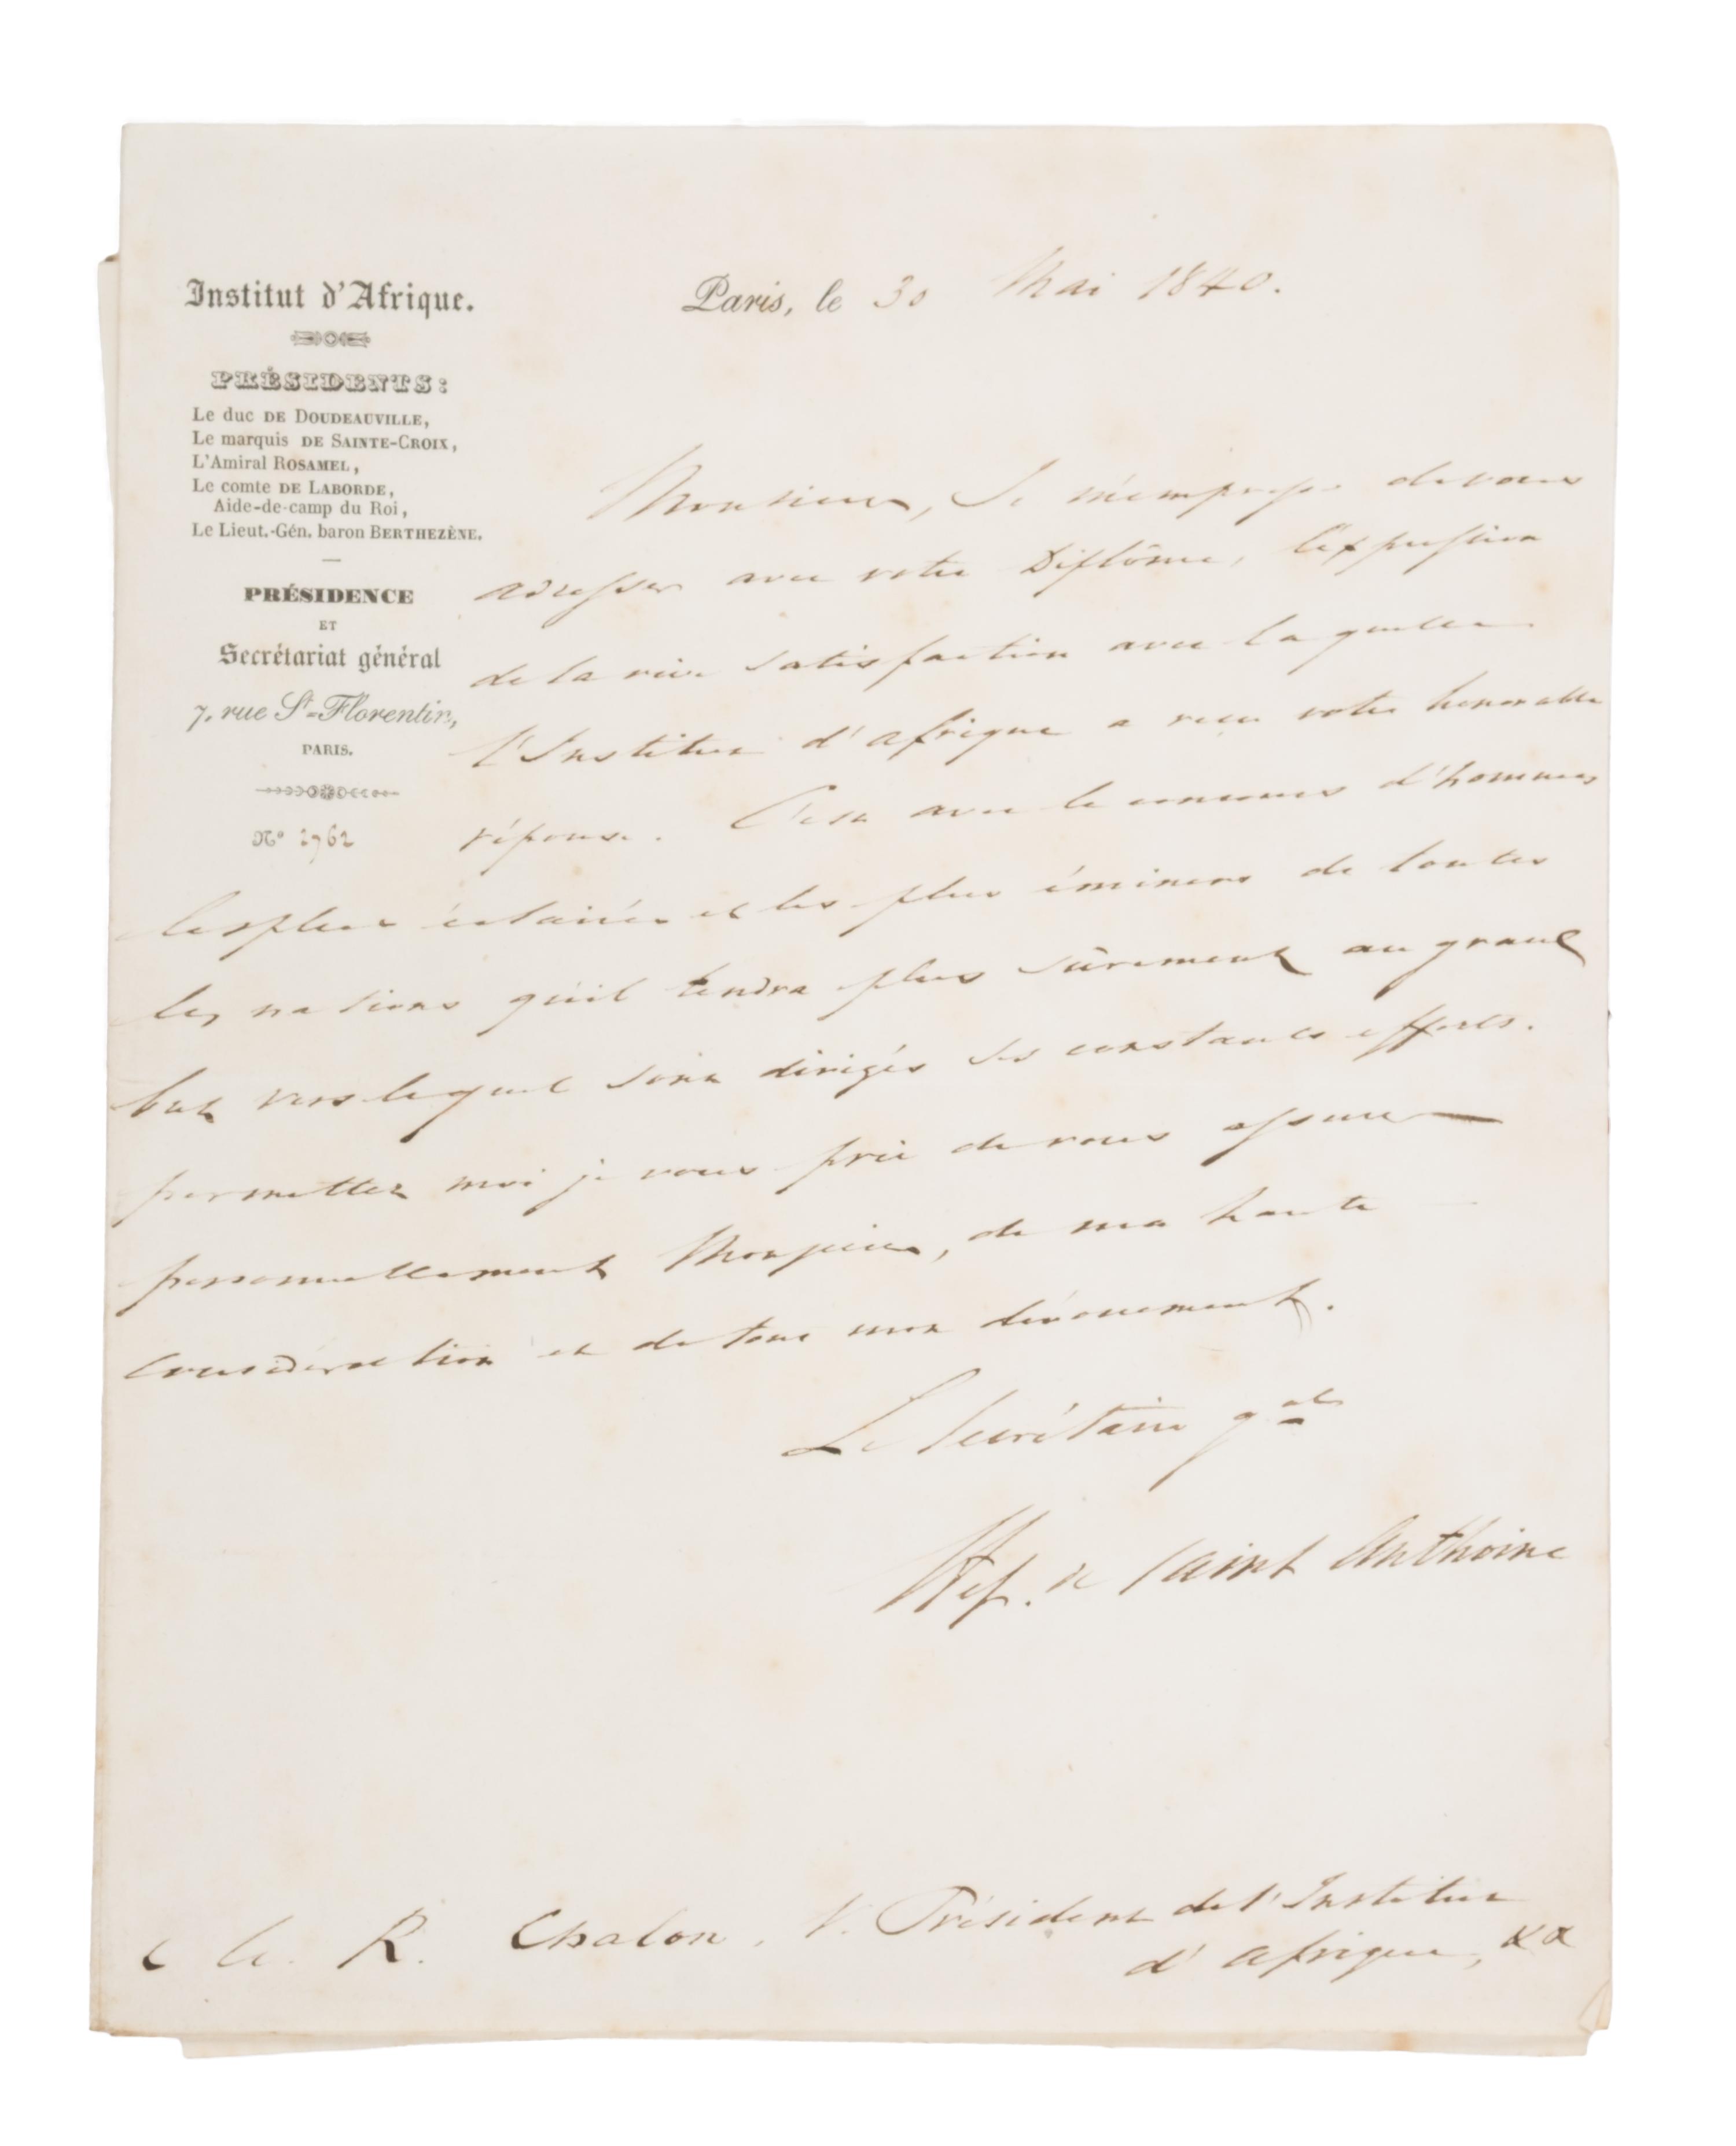 Institut d'Afrique.
PRÉSIDENTS:
Le duc DE DOUDEAUVILLE,
Le marquis DE SAINTE-CROIX,
L'Amiral ROSAMEL,
Le comte DE LABORDE,
Aide-de-camp du Roi,
Le Lieut.-Gén. baron BERTHEZÈNE.
PRÉSIDENCE
ET
Secrétariat général
7, rue St=Florentin,
PARIS.
No 2762
Paris, le 30 Mai 1840.
Monsieur, Je m'empresse de vous
adresser avec votre Diplôme, l'expression
de la vive satisfaction avec laquelle
l'Institut d'afrique a reçu votre honorable
réponse. C'est avec le concours d'hommes
les plus éclairés et les plus éminens de toutes
les nations qu'il tendra plus sûrement au grand
but vers lequel sont dirigés ses constants efforts.
permettez moi je vous prie de vous assurer
personnellement Monsieur, de ma haute
considération et de tout mon dévouement.
Le Secrétaire gal
Hip. de Saint Anthoine
R. Chalon, V. Président de l'Institut
d'afrique,